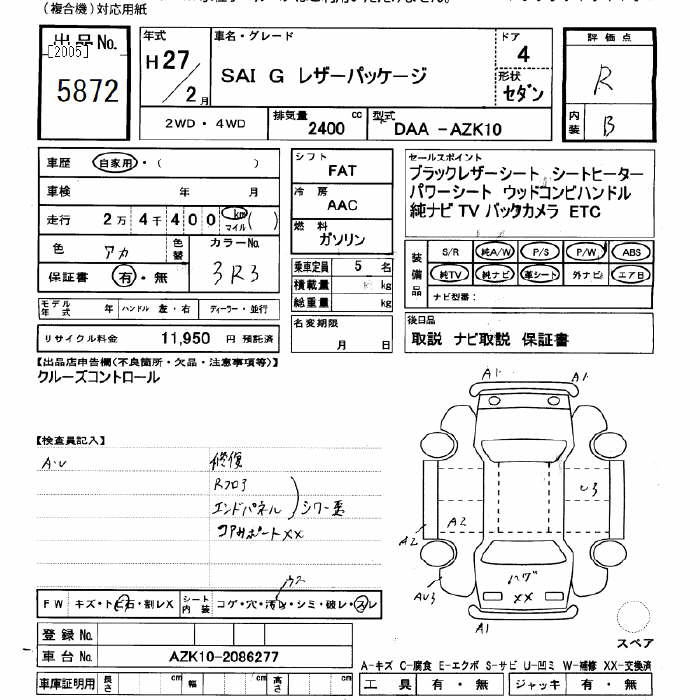 （複合機）対応用紙
出品No.
[2005]
5872
年式
H27/2月
車名・グレード
SAI G レザーパッケージ
ドア
4
形状
セダン
評価点
R
内装
B
2WD・4WD
排気量
2400 cc
型式
DAA -AZK10
車歴 自家用・( )
車検 年 月
走行 2万 4千 400 km マイル ( )
色 アカ 色替 カラーNo. 3R3
保証書 有・無
シフト
FAT
冷房
AAC
燃料
ガソリン
乗車定員 5 名
積載量 kg
総重量 kg
名変期限
月 日
セールスポイント
ブラックレザーシート シートヒーター
パワーシート ウッドコンビハンドル
純ナビ TV バックカメラ ETC
装備品
S/R 純A/W P/S P/W ABS
純TV 純ナビ 革シート 外ナビ エアB
ナビ型番：
モデル年式 年 ハンドル 左・右 ディーラー・並行
リサイクル料金 11,950 円 預託済
後日品
取説 ナビ取説 保証書
【出品店申告欄(不良箇所・欠品・注意事項等)】
クルーズコントロール
【検査員記入】
A・U
修復
Rフロア
エンドパネル シワ一悪
コアサポートXX
A1 A1
A2
A2
U3
AU3
XX
A1
FW キズ・トビ石・割レX シート内装 コゲ・穴・汚レ・シミ・破レ・スレ
登録No.
車台No. AZK10-2086277
車庫証明用 長さ cm 幅 cm 高さ cm
スペア
A-キズ C-腐食 E-エクボ S-サビ U-凹ミ W-補修 XX-交換済
工具 有・無 ジャッキ 有・無